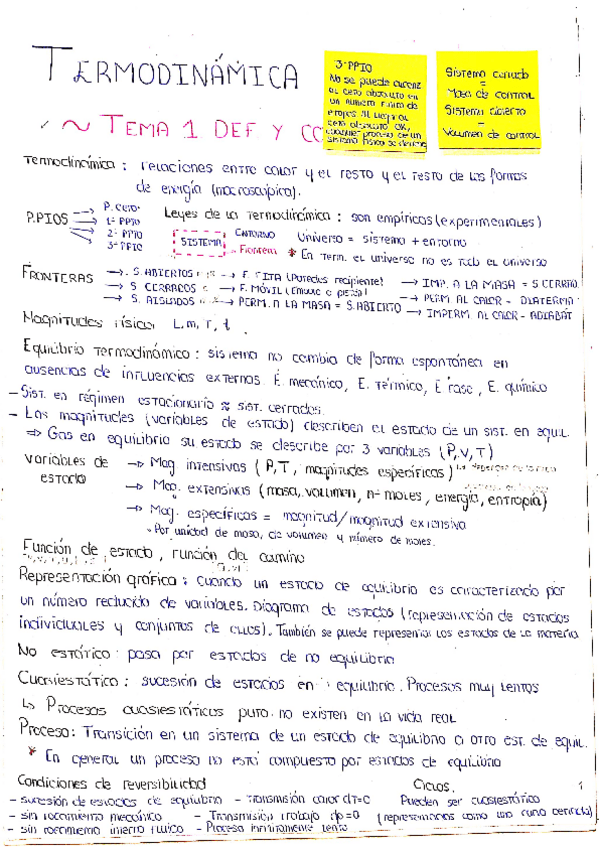 TERMODINÁMICA
3º PPIO
No se puede
el cero absoluto en
un número finito de
etapas. Al llegar al
cero absoluto 0K,
cualquier proceso de un
sistema físico se detiene
Sistema cerrado
=
Masa de control
Sistema abierto
=
Volumen de control
~ TEMA 1 DEF Y
Termodinámica : relaciones entre calor y el resto y el resto de las formas
de energía (macroscópica).
P.PIOS → P. Cero
→ 1º PPIO
→ 2º PPIO
→ 3º PPIO
Leyes de la Termodinámica : son empíricas (experimentales)
SISTEMA ENTORNO Frontera
Universo = sistema + entorno
* En Term. el universo no es todo el universo
FRONTERAS → S. ABIERTOS → F. FIJA (Paredes recipiente) → IMP. A LA MASA = S CERRADO
→ S CERRADOS → F. MÓVIL (Émbolo o pistón) → PERM AL CALOR - DIATERMA
→ S. AISLADOS → PERM. A LA MASA = S. ABIERTO → IMPERM. AL CALOR - ADIABAT
Magnitudes físicas L, m, T, t.
Equilibrio termodinámico : sistema no cambia de forma espontánea en
ausencias de influencias externas E. mecánico, E. térmico, E fase, E. químico
- Sist. en régimen estacionario ≈ sist. cerrados.
- Las magnitudes (variables de estado) describen el estado de un sist. en equil.
⇒ Gas en equilibrio su estado se describe por 3 variables (P, V, T)
Variables de estado → Mag intensivas (P, T, magnitudes específicas)
→ Mag. extensivas (masa, volumen, nº moles, energía, entropía)
→ Mag. específicas = magnitud/magnitud extensiva
• Por unidad de masa, de volumen y número de moles.
Función de estado, función del camino
Representación gráfica : cuando un estado de equilibrio es caracterizado por
un número reducido de variables. Diagrama de estados (representación de estados
individuales y conjuntos de ellos). También se puede representar los estados de la materia
No estático : pasa por estados de no equilibrio
Cuasiestático : sucesión de estados en equilibrio. Procesos muy lentos
↳ Procesos cuasiestáticos puro no existen en la vida real
Proceso : Transición en un sistema de un estado de equilibrio a otro est. de equil.
* En general un proceso no está compuesto por estados de equilibrio
Condiciones de reversibilidad Ciclos. 1
- sucesión de estados de equilibrio - Transmisión calor dT=0 Pueden ser cuasiestático
- sin rozamiento mecánico - Transmisión trabajo dp=0 (representarlos como una curva cerrada)
- sin rozamiento interno fluido - Proceso infinitamente lento